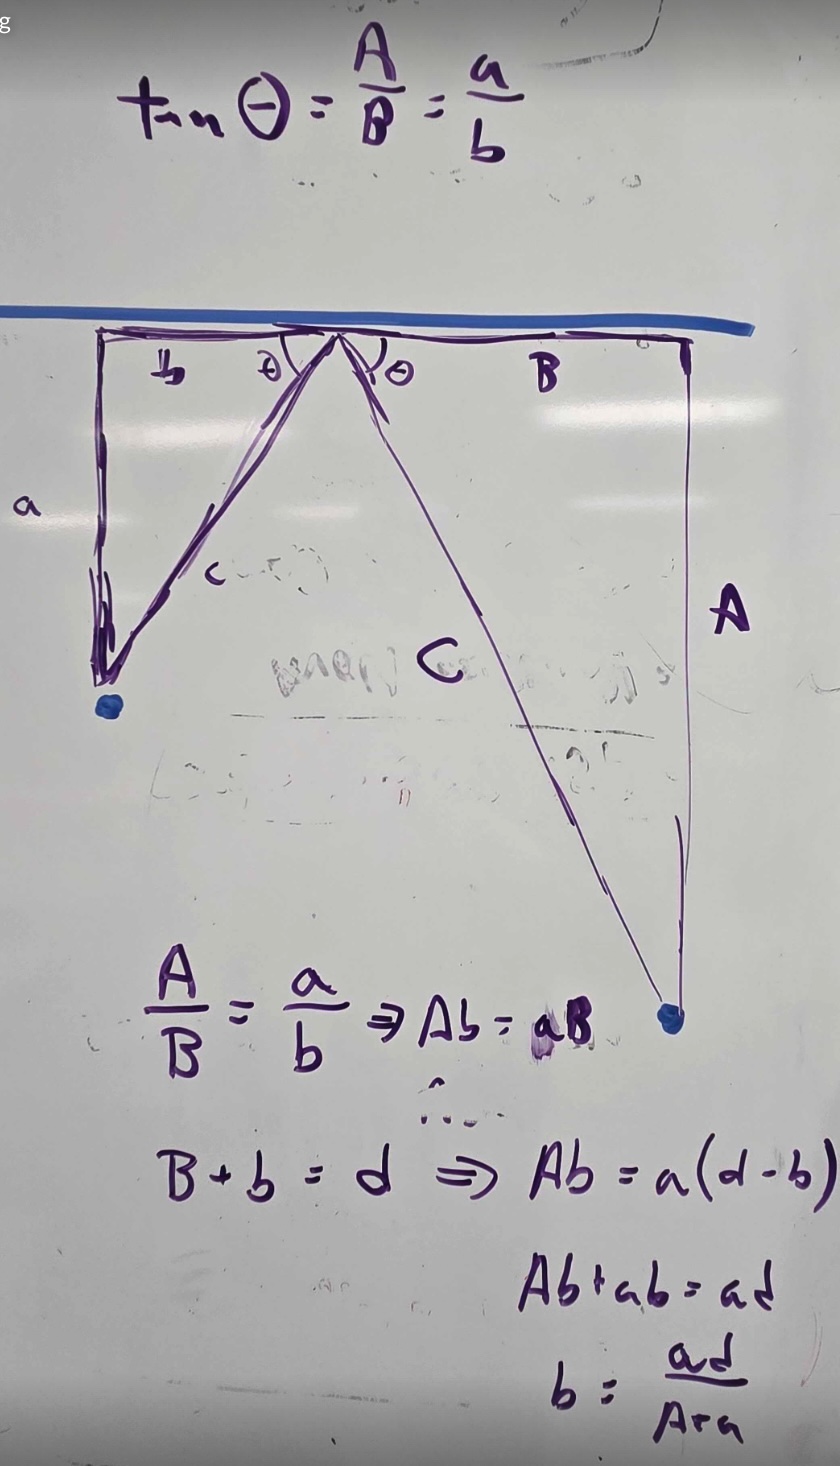 g
tan θ = A/B = a/b
b θ θ B
a
c
C
A
A/B = a/b ⇒ Ab = aB
B + b = d ⇒ Ab = a(d - b)
Ab + ab = ad
b = ad/A+a